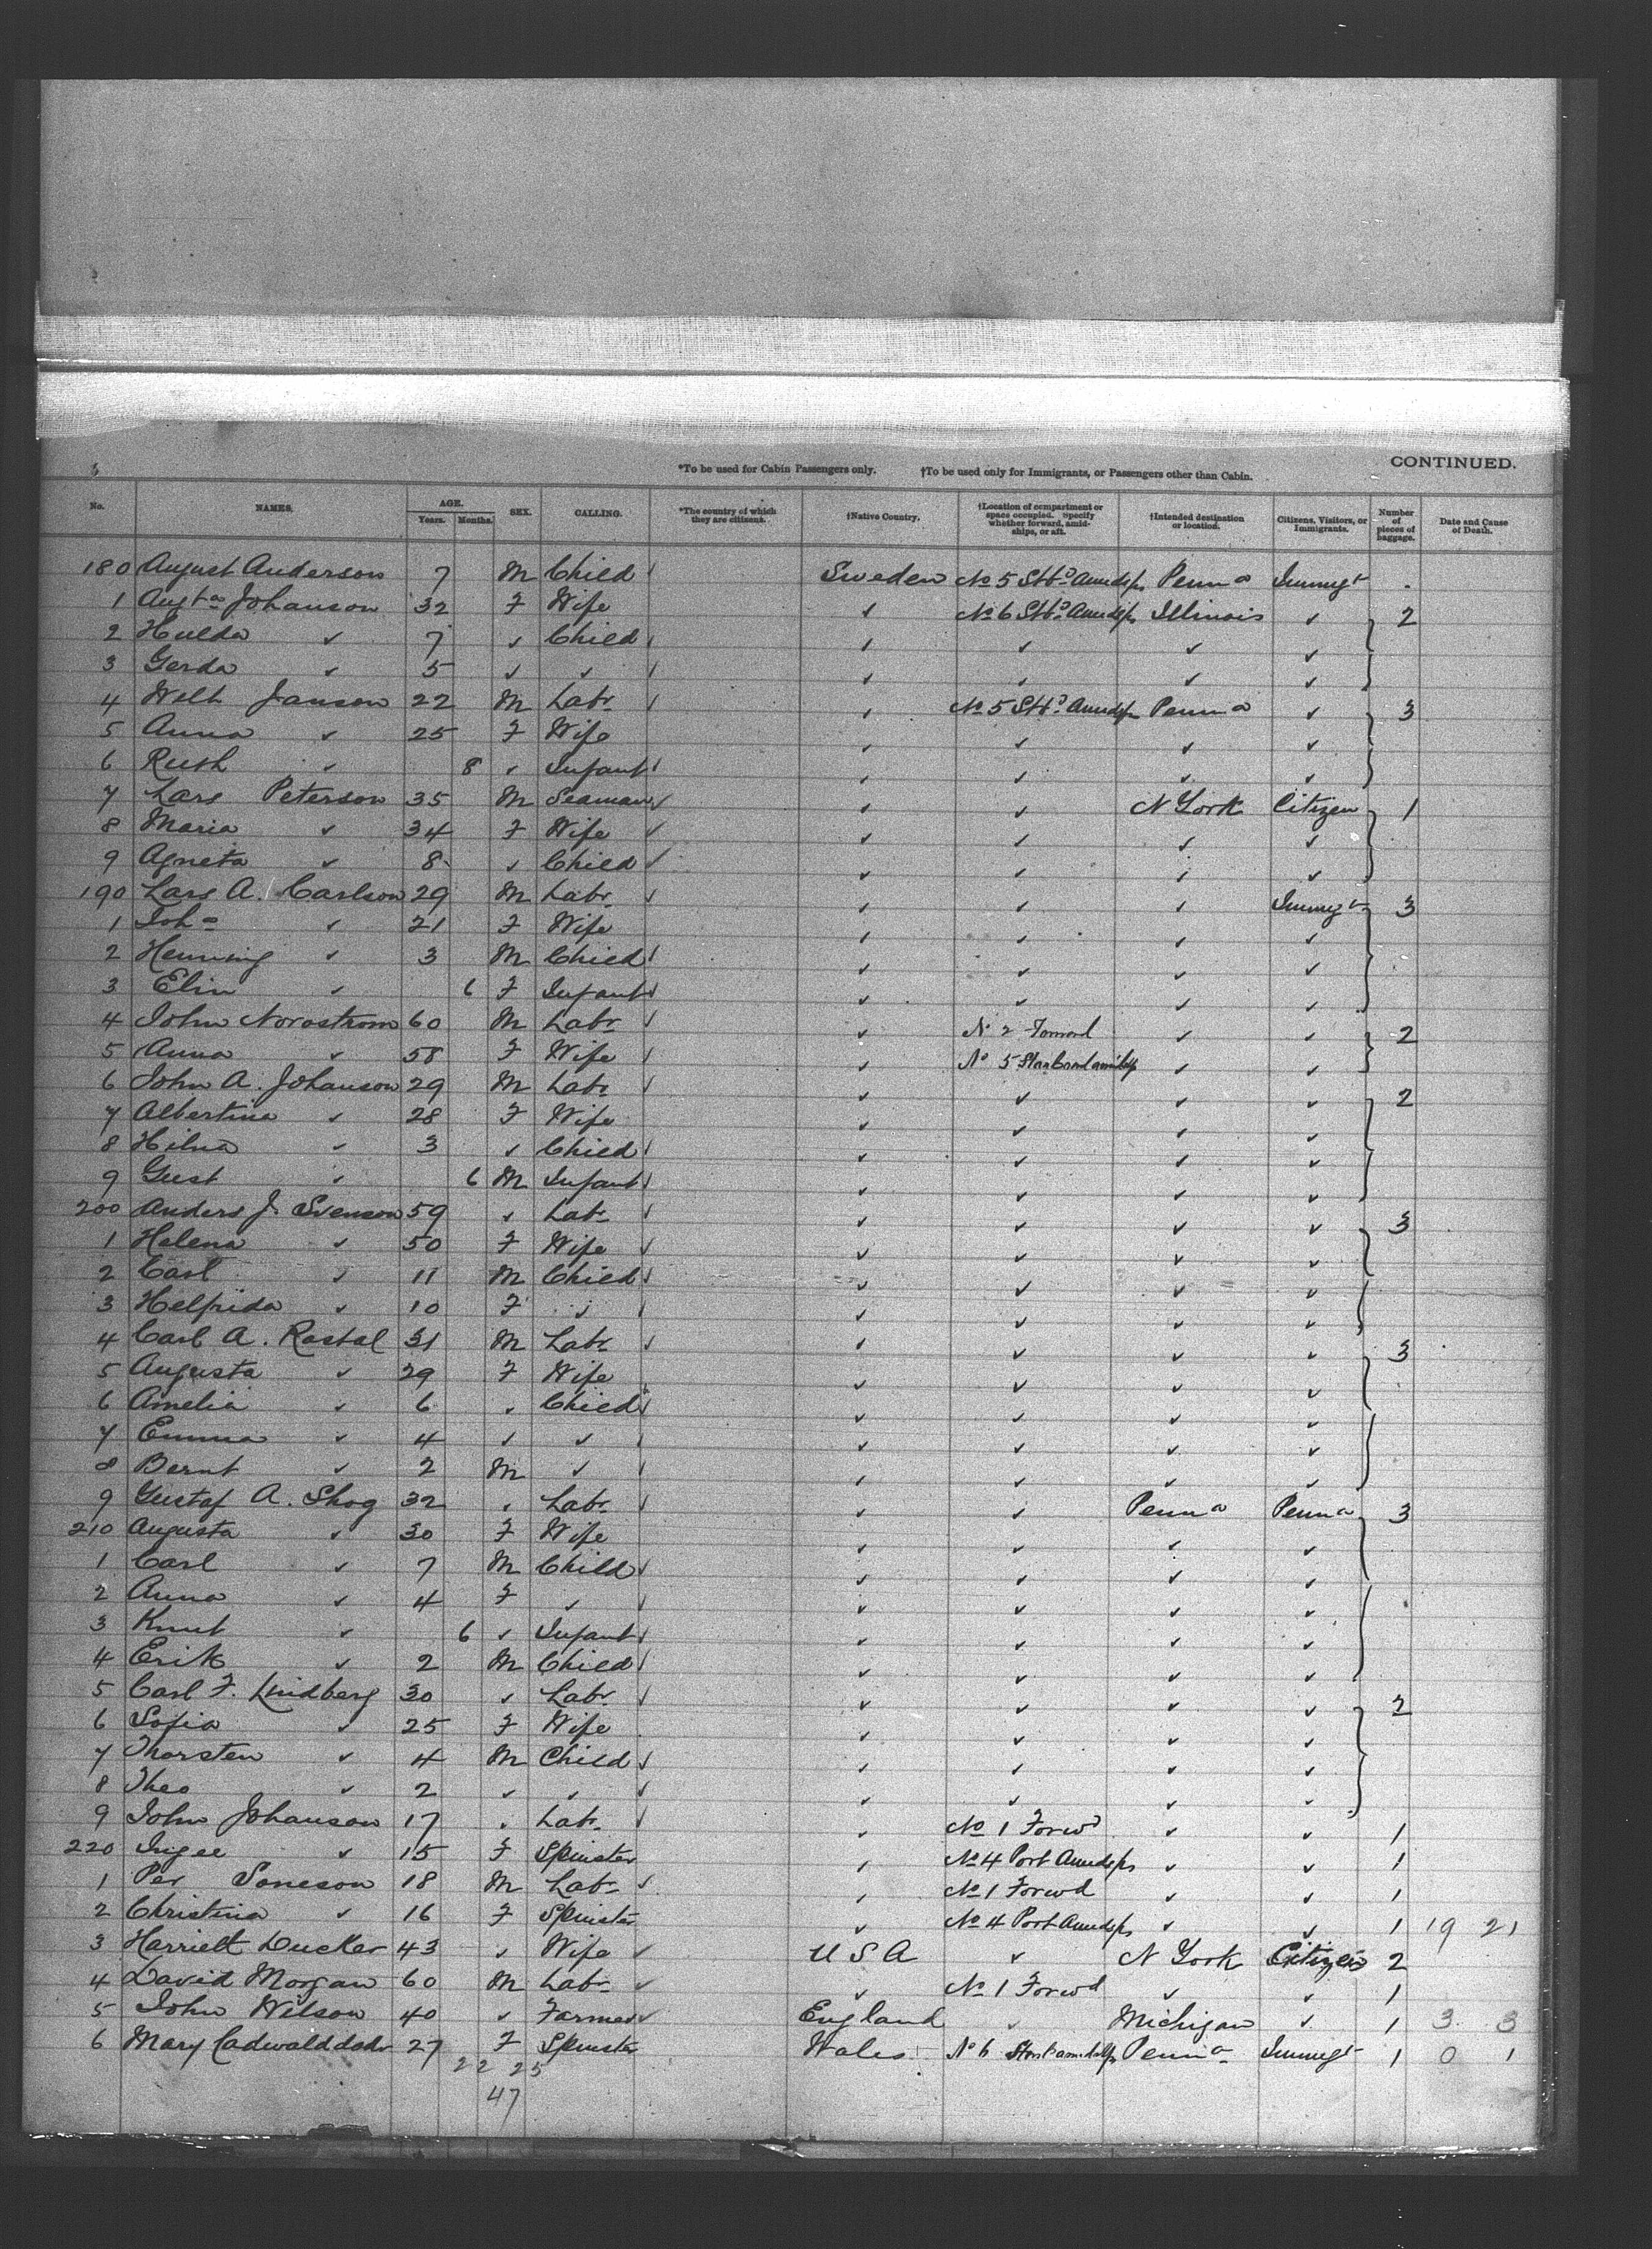 *To be used for Cabin Passengers only. †To be used only for Immigrants, or Passengers other than Cabin. CONTINUED.
No. NAMES. AGE. Years. Months. SEX. CALLING. *The country of which they are citizens. †Native Country. †Location of compartment or space occupied. Specify whether forward, amidships, or aft. †Intended destination or location. Citizens, Visitors, or Immigrants. Number of pieces of baggage. Date and Cause of Death.
180 August Anderson 7 M Child Sweden No 5 Stbd Amidsps Penna Immigt
1 Augta Johanson 32 F Wife ✓ No 6 Stbd Amidsps Illinois ✓ 2
2 Hulda ✓ 7 ✓ Child ✓ ✓ ✓ ✓
3 Gerda ✓ 5 ✓ ✓ ✓ ✓ ✓ ✓
4 Wilh Janson 22 M Labr ✓ No 5 Stbd Amidsps Penna ✓ 3
5 Anna ✓ 25 F Wife ✓ ✓ ✓ ✓
6 Ruth ✓ 8 ✓ Infant ✓ ✓ ✓ ✓
7 Lars Peterson 35 M Seaman ✓ ✓ ✓ N York Citizen 1
8 Maria ✓ 34 F Wife ✓ ✓ ✓ ✓ ✓
9 Agneta ✓ 8 ✓ Child ✓ ✓ ✓ ✓ ✓
190 Lars A. Carlson 29 M Labr ✓ ✓ ✓ ✓ Immigt 3
1 Joha ✓ 21 F Wife ✓ ✓ ✓ ✓
2 Henning ✓ 3 M Child ✓ ✓ ✓ ✓
3 Elin ✓ 6 F Infant ✓ ✓ ✓ ✓ ✓
4 John Norostrom 60 M Labr ✓ ✓ No 2 Forward ✓ ✓ 2
5 Anna ✓ 58 F Wife ✓ No 5 ✓ ✓
6 John A. Johanson 29 M Labr ✓ ✓ ✓ ✓ 2
7 Albertina ✓ 28 F Wife ✓ ✓ ✓ ✓
8 Hilna ✓ 3 ✓ Child ✓ ✓ ✓ ✓
9 Gust ✓ 6 M Infant ✓ ✓ ✓ ✓
200 Anders J. Svenson 59 ✓ Labr ✓ ✓ ✓ ✓ 3
1 Helena ✓ 50 F Wife ✓ ✓ ✓ ✓ ✓
2 Carl ✓ 11 M Child ✓ ✓ ✓ ✓ ✓
3 Helfrida ✓ 10 F ✓ ✓ ✓ ✓ ✓
4 Carl A. Rastal 31 M Labr ✓ ✓ ✓ ✓ ✓ 3
5 Augusta ✓ 29 F Wife ✓ ✓ ✓ ✓
6 Amelia ✓ 6 ✓ Child ✓ ✓ ✓ ✓ ✓
7 Emma ✓ 4 ✓ ✓ ✓ ✓ ✓ ✓
8 Bernt ✓ 2 M ✓ ✓ ✓ ✓ ✓
9 Gustaf A. Skog 32 ✓ Labr ✓ ✓ Penna Penna 3
210 Augusta ✓ 30 F Wife ✓ ✓ ✓ ✓
1 Carl ✓ 7 M Child ✓ ✓ ✓ ✓ ✓
2 Anna ✓ 4 F ✓ ✓ ✓ ✓ ✓
3 Knut ✓ 6 ✓ Infant ✓ ✓ ✓ ✓ ✓
4 Erik ✓ 2 M Child ✓ ✓ ✓ ✓
5 Carl F. Lindberg 30 ✓ Labr ✓ ✓ ✓ ✓ 2
6 Sofia ✓ 25 F Wife ✓ ✓ ✓ ✓
7 Thorsten ✓ 4 M Child ✓ ✓ ✓ ✓ ✓
8 Theo ✓ 2 ✓ ✓ ✓ ✓ ✓ ✓ ✓
9 John Johanson 17 ✓ Labr ✓ ✓ No 1 Forwd ✓ ✓ 1
220 Ingee ✓ 15 F Spinster ✓ No 4 Port Amidsps ✓ ✓ 1
1 Per Soneson 18 M Labr ✓ ✓ No 1 Forwd ✓ ✓ 1
2 Christina ✓ 16 F Spinster ✓ No 4 Port Amidsps ✓ ✓ 1 19 21
3 Harriett Ducker 43 ✓ Wife ✓ U S A ✓ N York Citizen 2
4 David Morgan 60 M Labr ✓ ✓ No 1 Forwd ✓ ✓ 1
5 John Wilson 40 ✓ Farmer ✓ England ✓ Michigan ✓ 1 3 3
6 Mary 27 F Spinster Wales No 6 Penna Immigt 1 0 1
22 25
47